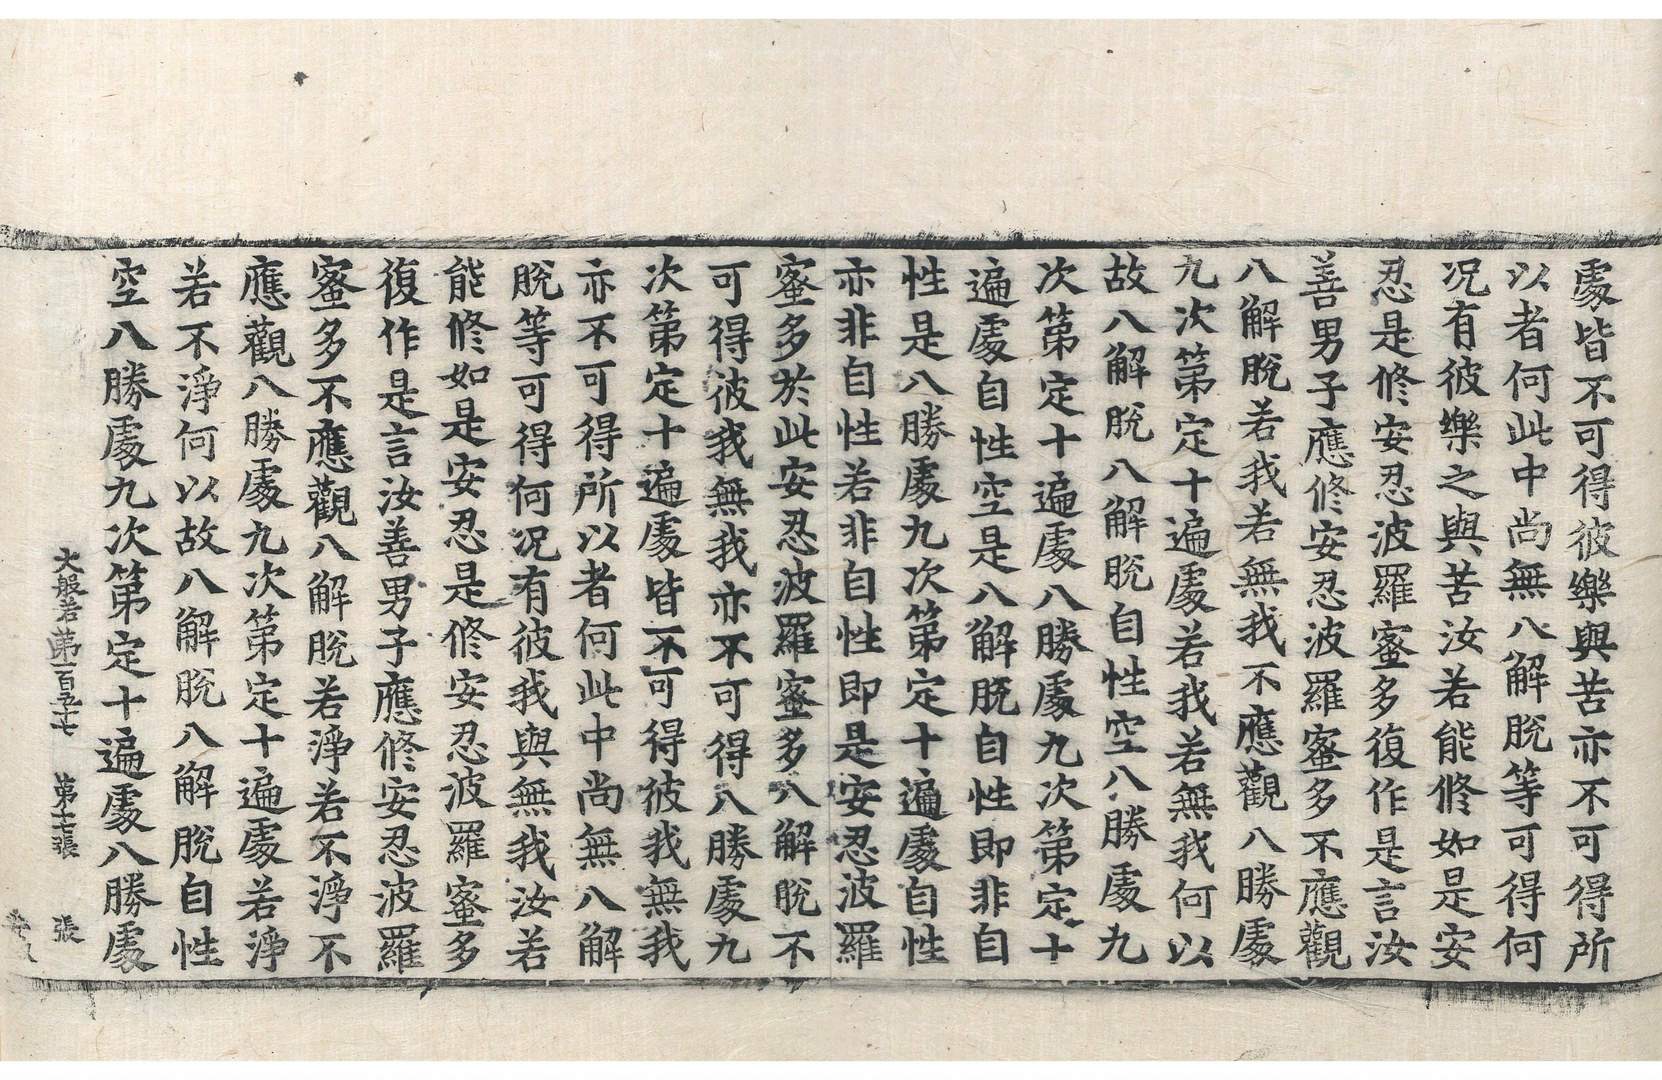 處皆不可得彼樂與苦亦不可得所
以者何此中尚無八解脫等可得何
況有彼樂之與苦汝若能修如是安
忍是修安忍波羅蜜多復作是言汝
善男子應修安忍波羅蜜多不應觀
八解脫若我若無我不應觀八勝處
九次第定十遍處若我若無我何以
故八解脫八解脫自性空八勝處九
次第定十遍處八勝處九次第定十
遍處自性空是八解脫自性即非自
性是八勝處九次第定十遍處自性
亦非自性若非自性即是安忍波羅
蜜多於此安忍波羅蜜多八解脫不
可得彼我無我亦不可得八勝處九
次第定十遍處皆不可得彼我無我
亦不可得所以者何此中尚無八解
脫等可得何況有彼我與無我汝若
能修如是安忍是修安忍波羅蜜多
復作是言汝善男子應修安忍波羅
蜜多不應觀八解脫若淨若不淨不
應觀八勝處九次第定十遍處若淨
若不淨何以故八解脫八解脫自性
空八勝處九次第定十遍處八勝處
大般若第一百五十七 第十七張 張